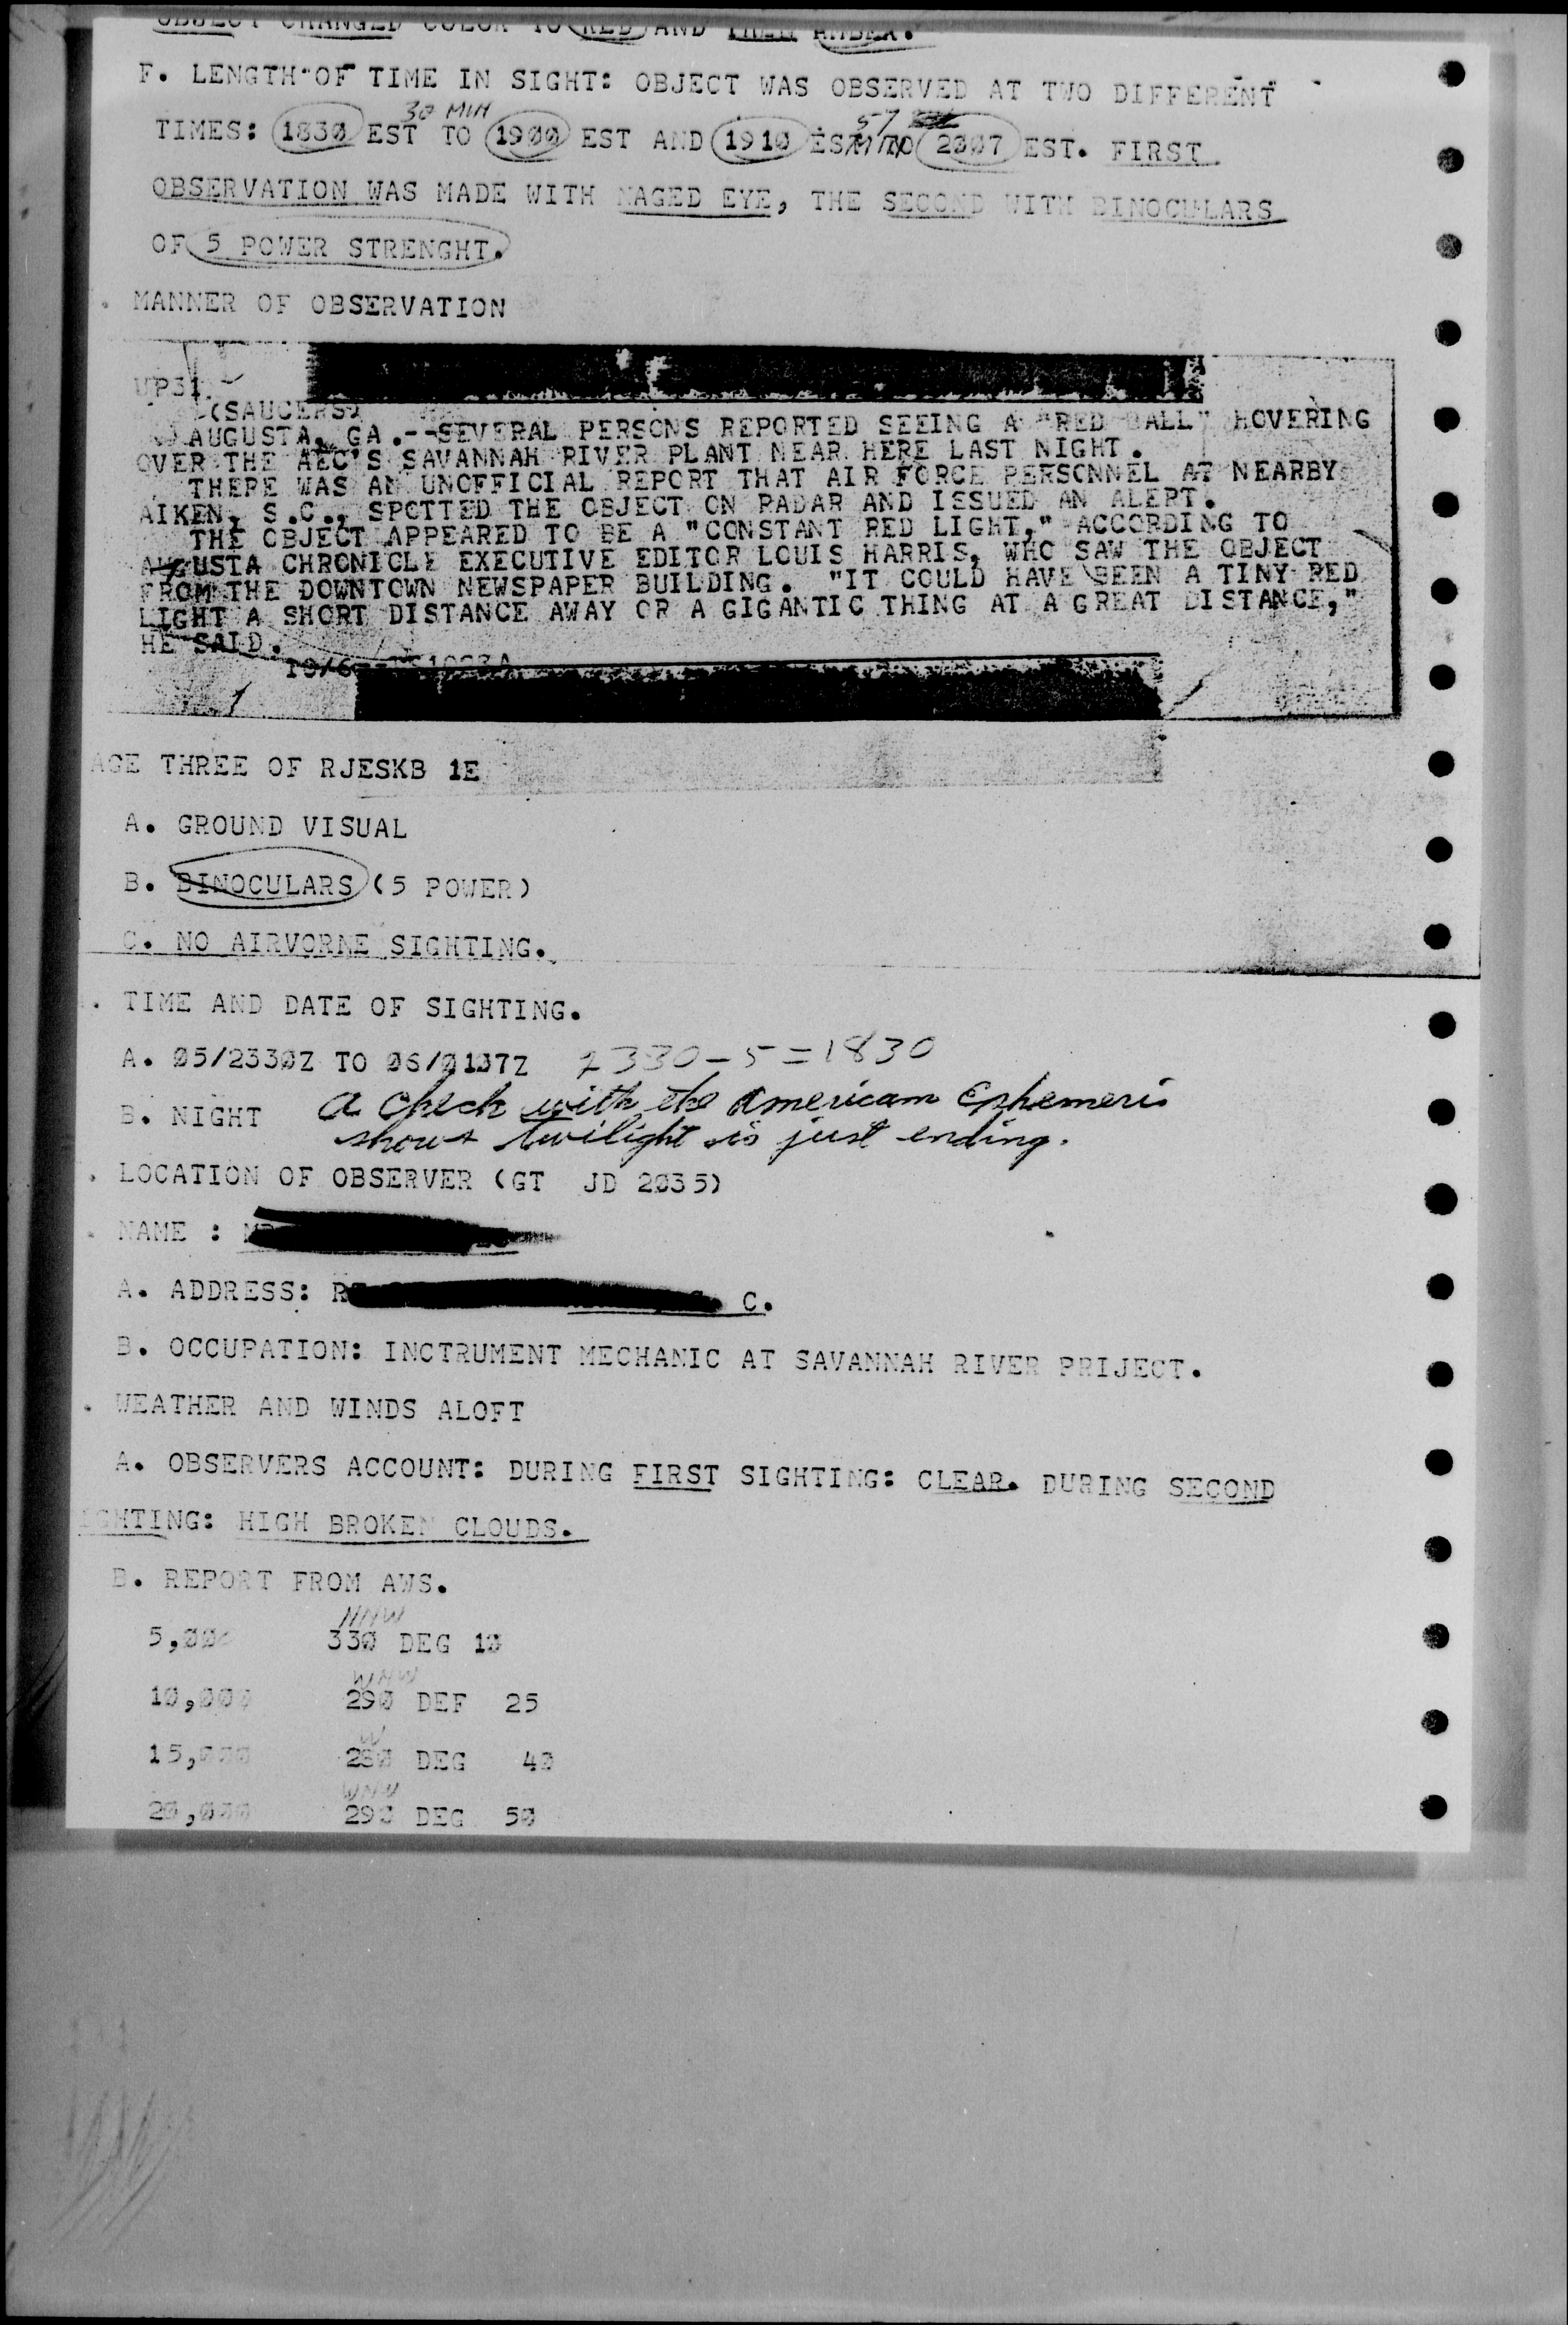 OBJECT CHANGED COLOR TO RED AND THEN AMBER.
F. LENGTH OF TIME IN SIGHT: OBJECT WAS OBSERVED AT TWO DIFFERENT
30 MIN
57
TIMES: 1830 EST TO 1900 EST AND 1910 EST TO 2007 EST. FIRST
OBSERVATION WAS MADE WITH NAGED EYE, THE SECOND WITH BINOCULARS
OF 5 POWER STRENGHT.
. MANNER OF OBSERVATION
UP31
(SAUCERS)
AUGUSTA, GA.--SEVERAL PERSONS REPORTED SEEING A "RED BALL" HOVERING
OVER THE AEC'S SAVANNAH RIVER PLANT NEAR HERE LAST NIGHT.
THERE WAS AN UNOFFICIAL REPORT THAT AIR FORCE PERSONNEL AT NEARBY
AIKEN, S.C., SPOTTED THE OBJECT ON RADAR AND ISSUED AN ALERT.
THE OBJECT APPEARED TO BE A "CONSTANT RED LIGHT," ACCORDING TO
AUGUSTA CHRONICLE EXECUTIVE EDITOR LOUIS HARRIS, WHO SAW THE OBJECT
FROM THE DOWNTOWN NEWSPAPER BUILDING. "IT COULD HAVE BEEN A TINY RED
LIGHT A SHORT DISTANCE AWAY OR A GIGANTIC THING AT A GREAT DISTANCE,"
HE SAID.
10/6
AGE THREE OF RJESKB 1E
A. GROUND VISUAL
B. BINOCULARS (5 POWER)
C. NO AIRVORNE SIGHTING.
. TIME AND DATE OF SIGHTING.
A. 05/2330Z TO 06/0107Z 2330-5=1830
B. NIGHT a check with the American Ephemeris
shows twilight is just ending.
. LOCATION OF OBSERVER (GT JD 2035)
. NAME :
A. ADDRESS: C.
B. OCCUPATION: INCTRUMENT MECHANIC AT SAVANNAH RIVER PRIJECT.
. WEATHER AND WINDS ALOFT
A. OBSERVERS ACCOUNT: DURING FIRST SIGHTING: CLEAR. DURING SECOND
IGHTING: HIGH BROKEN CLOUDS.
B. REPORT FROM AWS.
NNW
5,000 330 DEG 10
WNW
10,000 290 DEF 25
W
15,000 280 DEG 40
WNW
20,000 290 DEG 50